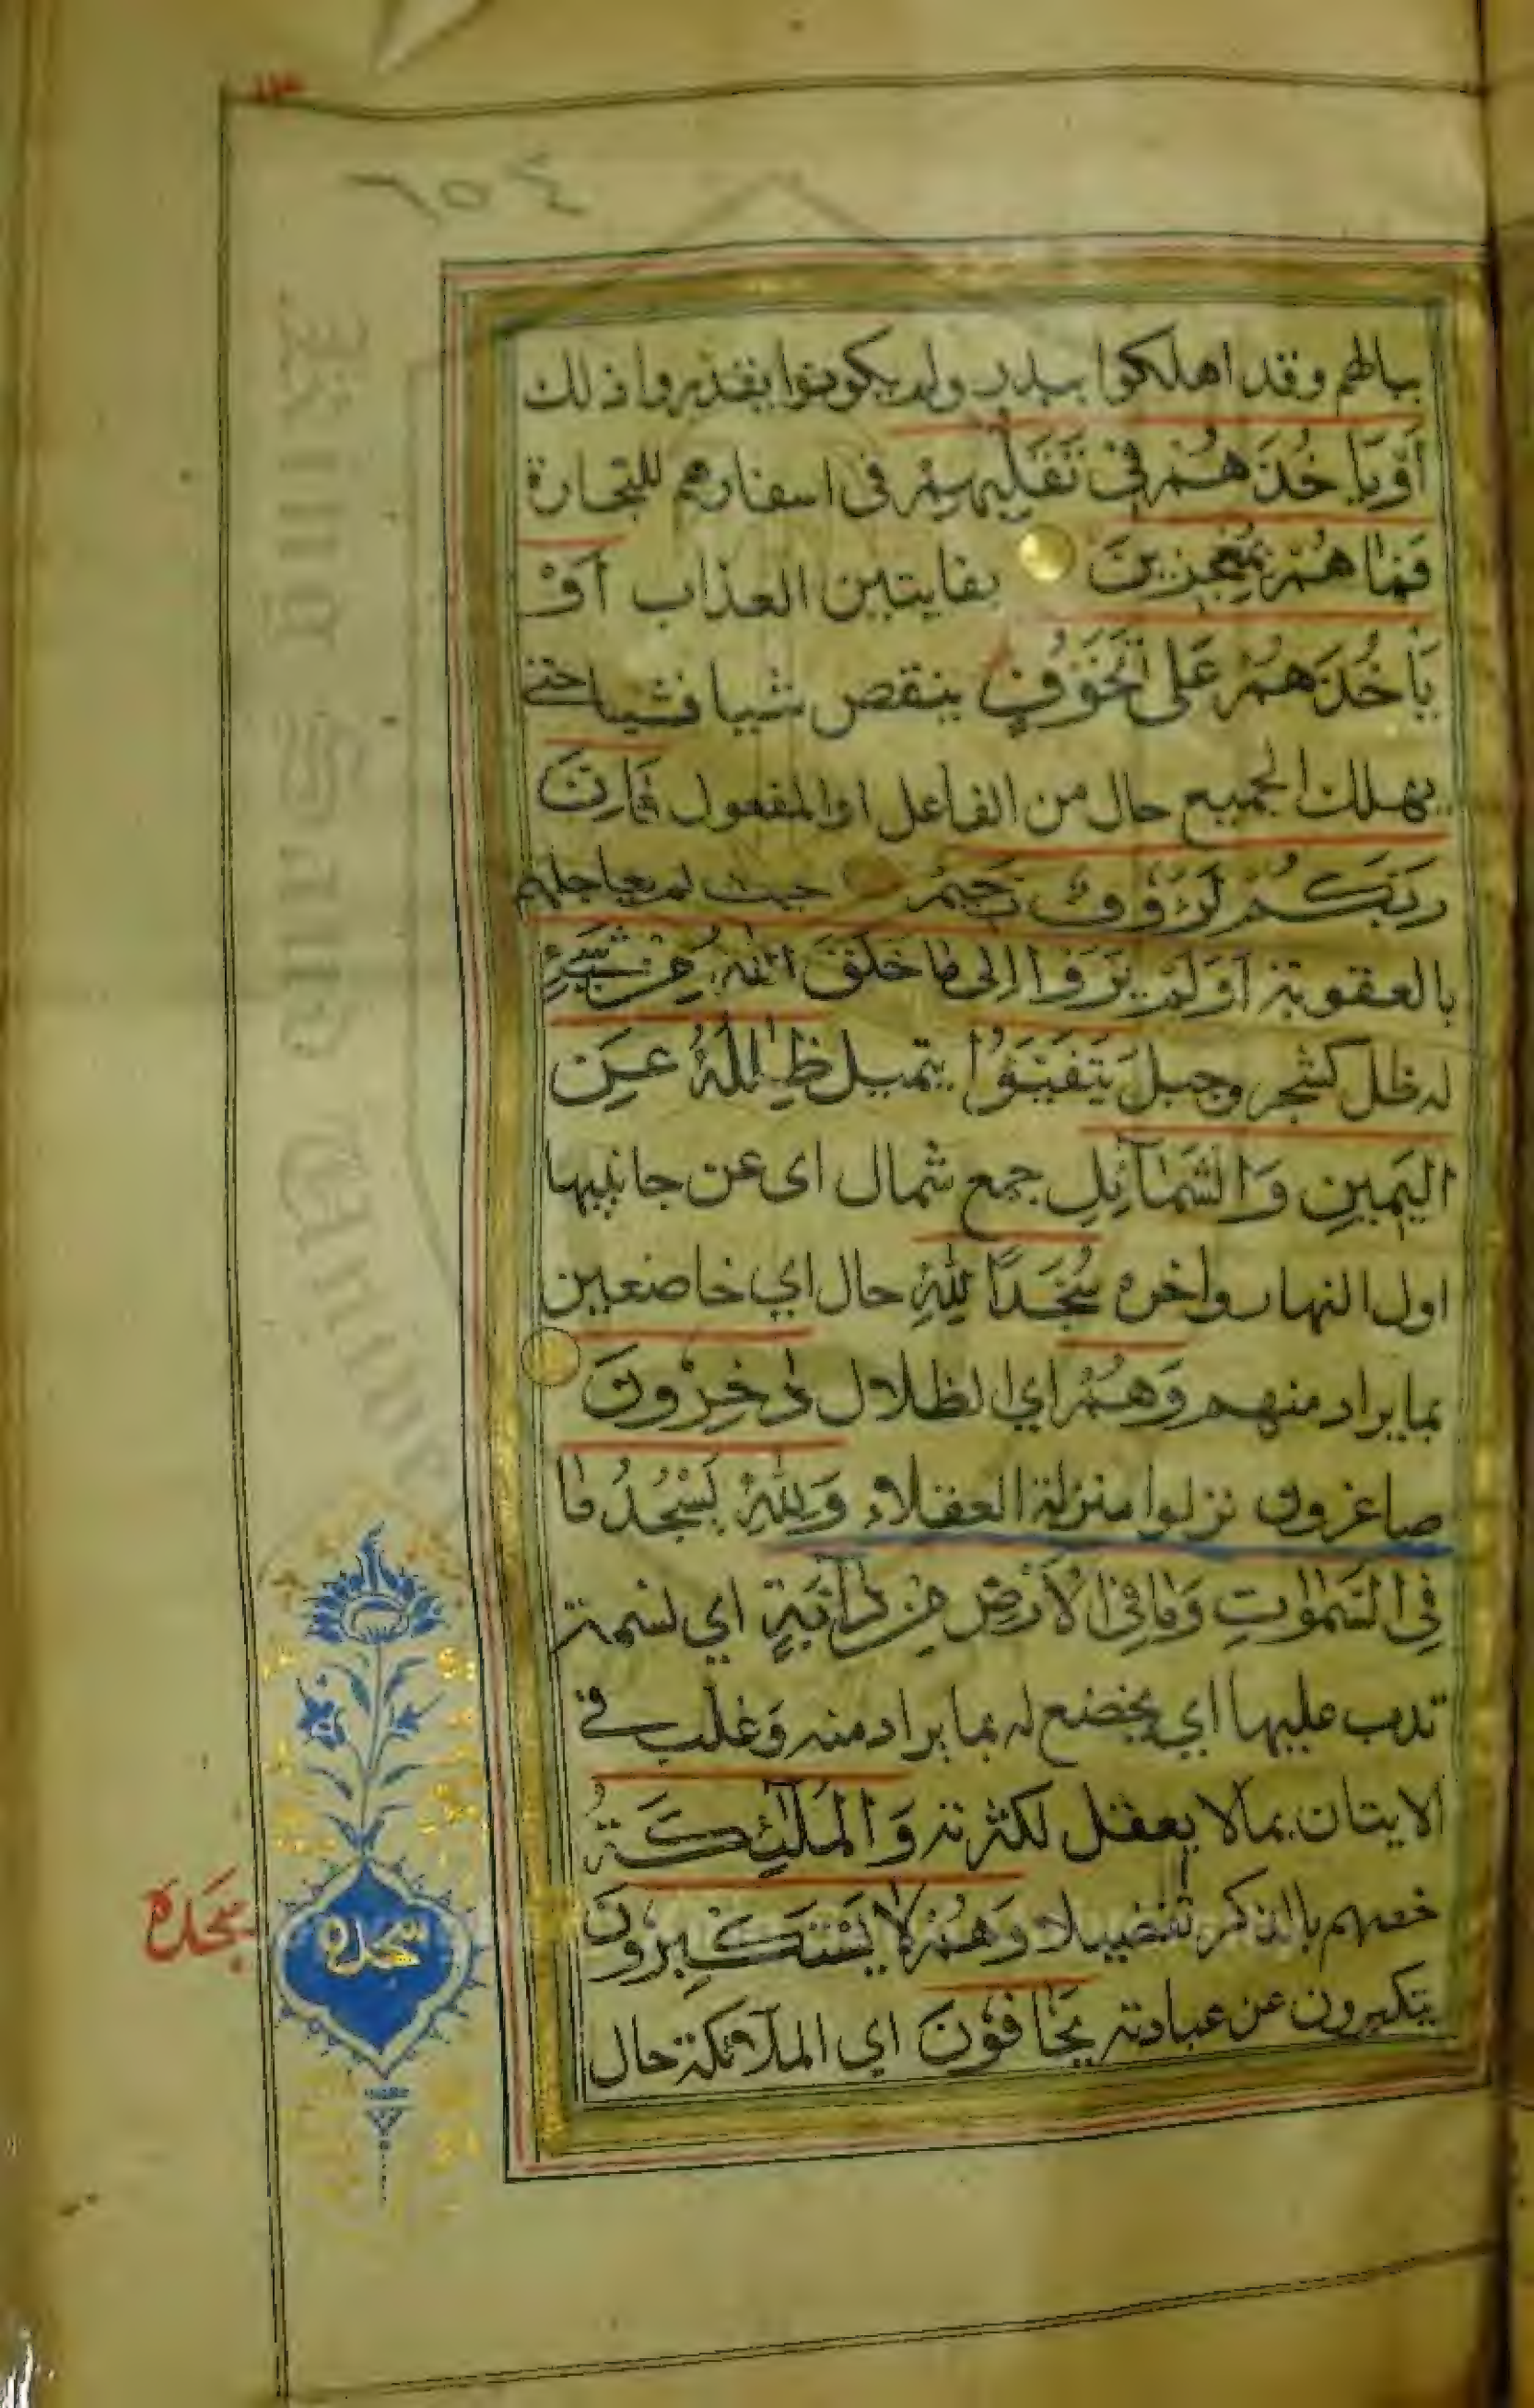 ٢٥٤
ببالهم وقد اهلكوا ببدر ولم يكونوا يقدروا ذلك
أَوْ يَأْخُذَهُمْ فِي تَقَلُّبِهِمْ في اسفارهم للتجارة
فَمَا هُمْ بِمُعْجِزِينَ بفايتين العذاب أَوْ
يَأْخُذَهُمْ عَلَى تَخَوُّفٍ ينقص شيا فشيا حتى
يهلك الجميع حال من الفاعل او المفعول فَإِنَّ
رَبَّكُمْ لَرَؤُوفٌ رَحِيمٌ حيث لم يعاجلهم
بالعقوبة أَوَلَمْ يَرَوْا إِلَى مَا خَلَقَ اللَّهُ مِنْ شَيْءٍ
له ظل كشجر وجبل يَتَفَيَّؤُا يتميل ظِلَالُهُ عَنِ
الْيَمِينِ وَالشَّمَآئِلِ جمع شمال اى عن جانبيها
اول النهار واخره سُجَّدًا لِلَّهِ حال اي خاضعين
بما يراد منهم وَهُمْ اي الظلال دَاخِرُونَ
صاغرون نزلوا منزلة العقلاء وَلِلَّهِ يَسْجُدُ مَا
فِي السَّمٰوٰتِ وَمَا فِي الْأَرْضِ مِنْ دَآبَّةٍ اي نسمة
تدب عليها اي يخضع له بما يراد منه وَغلب في
الايتان بما لا يعقل لكثرته وَالْمَلٰٓئِكَةُ
خصهم بالذكر تفضيلا وَهُمْ لَا يَسْتَكْبِرُونَ
يتكبرون عن عبادته يَخَافُونَ اي الملآئكة حال
سجده
سَجْدَه
King Saud University